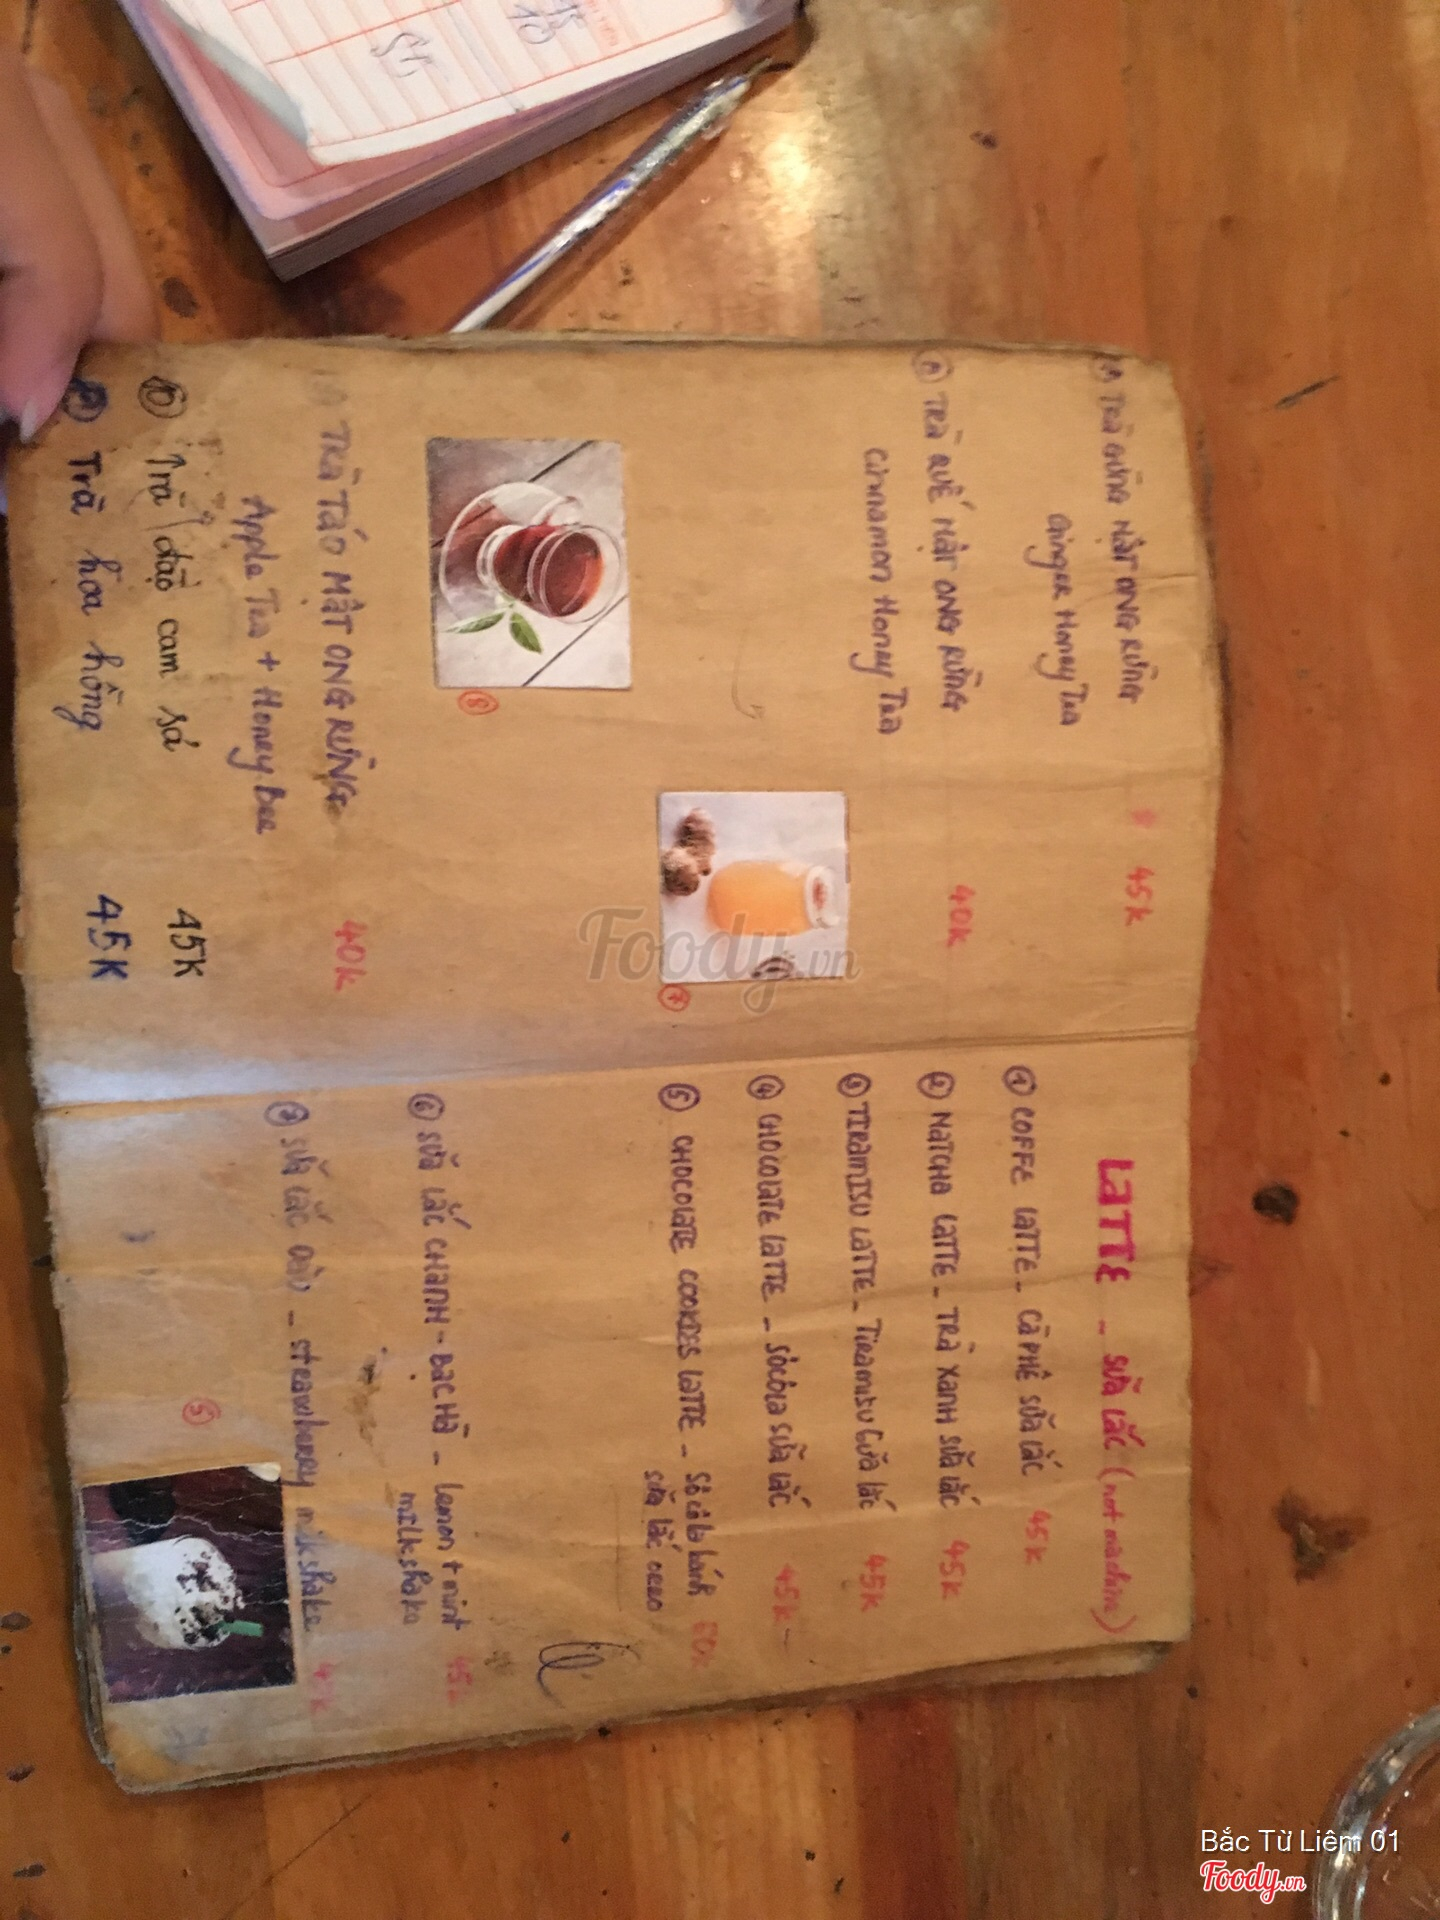 TRÀ GỪNG MẬT ONG RỪNG 45K
Ginger Honey Tea
TRÀ QUẾ MẬT ONG RỪNG 40K
Cinnamon Honey Tea
7
8
TRÀ TÁO MẬT ONG RỪNG 40K
Apple Tea + Honey Bee
Trà đào cam sả 45K
Trà hoa hồng 45K
LATTE - SỮA LẮC (not machine)
1 COFFE LATTE - CÀ PHÊ SỮA LẮC 45K
2 MATCHA LATTE - TRÀ XANH SỮA LẮC 45K
3 TIRAMISU LATTE - TIRAMISU SỮA LẮC 45K
4 CHOCOLATE LATTE - SÔCÔLA SỮA LẮC 45K
5 CHOCOLATE COOKIES LATTE - SÔ CÔ LA bánh
SỮA LẮC OREO
6 SỮA LẮC CHANH - BẠC HÀ - Lemon + mint 45K
milkshake
7 SỮA LẮC DÂU - strawberry milkshake
5
Foody.vn
Bắc Từ Liêm 01
Foody.vn